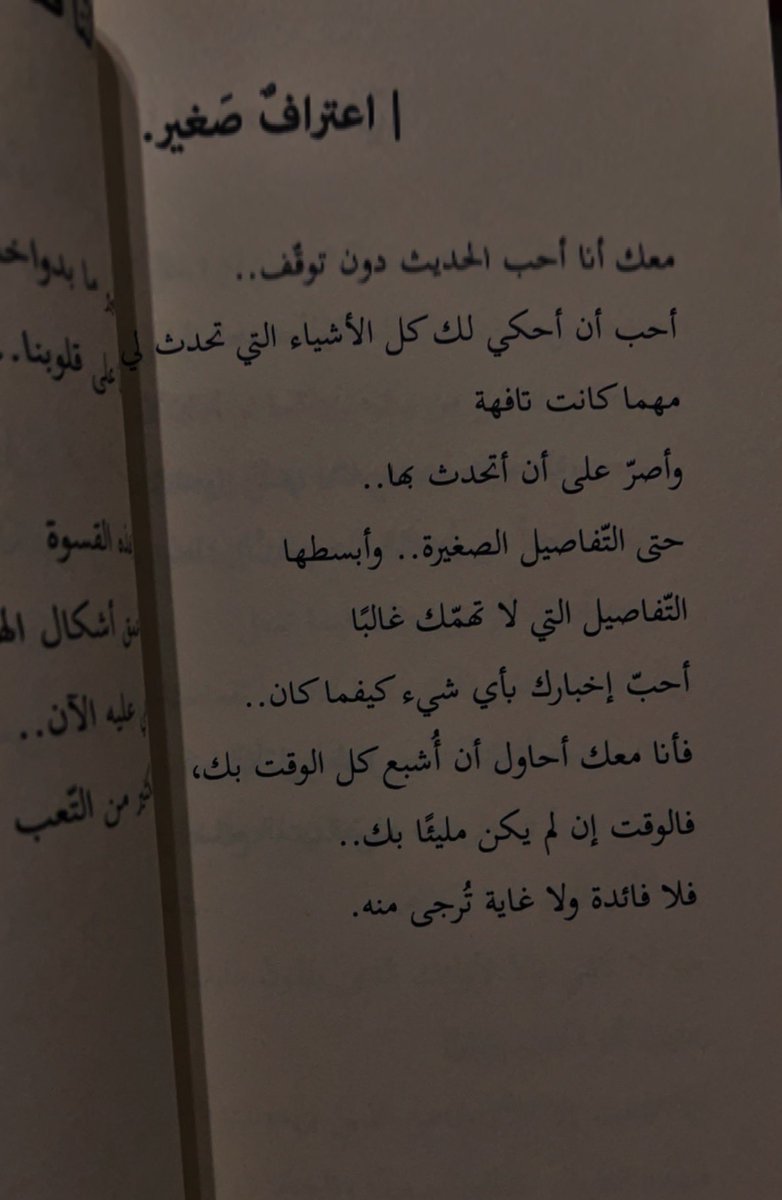 | اعترافٌ صَغير.
معك أنا أحب الحديث دون توقّف..
أحب أن أحكي لك كل الأشياء التي تحدث لي
مهما كانت تافهة
وأصرّ على أن أتحدث بها..
حتى التّفاصيل الصغيرة.. وأبسطها
التّفاصيل التي لا تهمّك غالبًا
أحبّ إخبارك بأي شيء كيفما كان..
فأنا معك أحاول أن أُشبع كل الوقت بك،
فالوقت إن لم يكن مليئًا بك..
فلا فائدة ولا غاية تُرجى منه.
ما بدواخ
على قلوبنا..
القسوة
أشكال
عليه الآن..
من التّعب